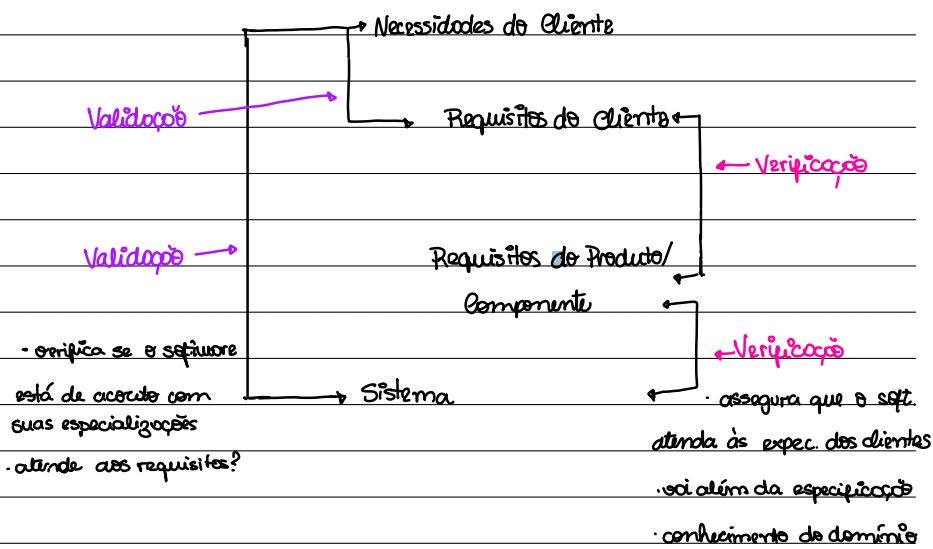 Necessidades do Cliente
Validação
Requisitos do Cliente
Verificação
Validação
Requisitos do Produto/
Componente
Verificação
Sistema
· verifica se o software
está de acordo com
suas especializações
· atende aos requisitos?
· assegura que o soft.
atenda às expec. dos clientes
· vai além da especificação
· conhecimento do domínio